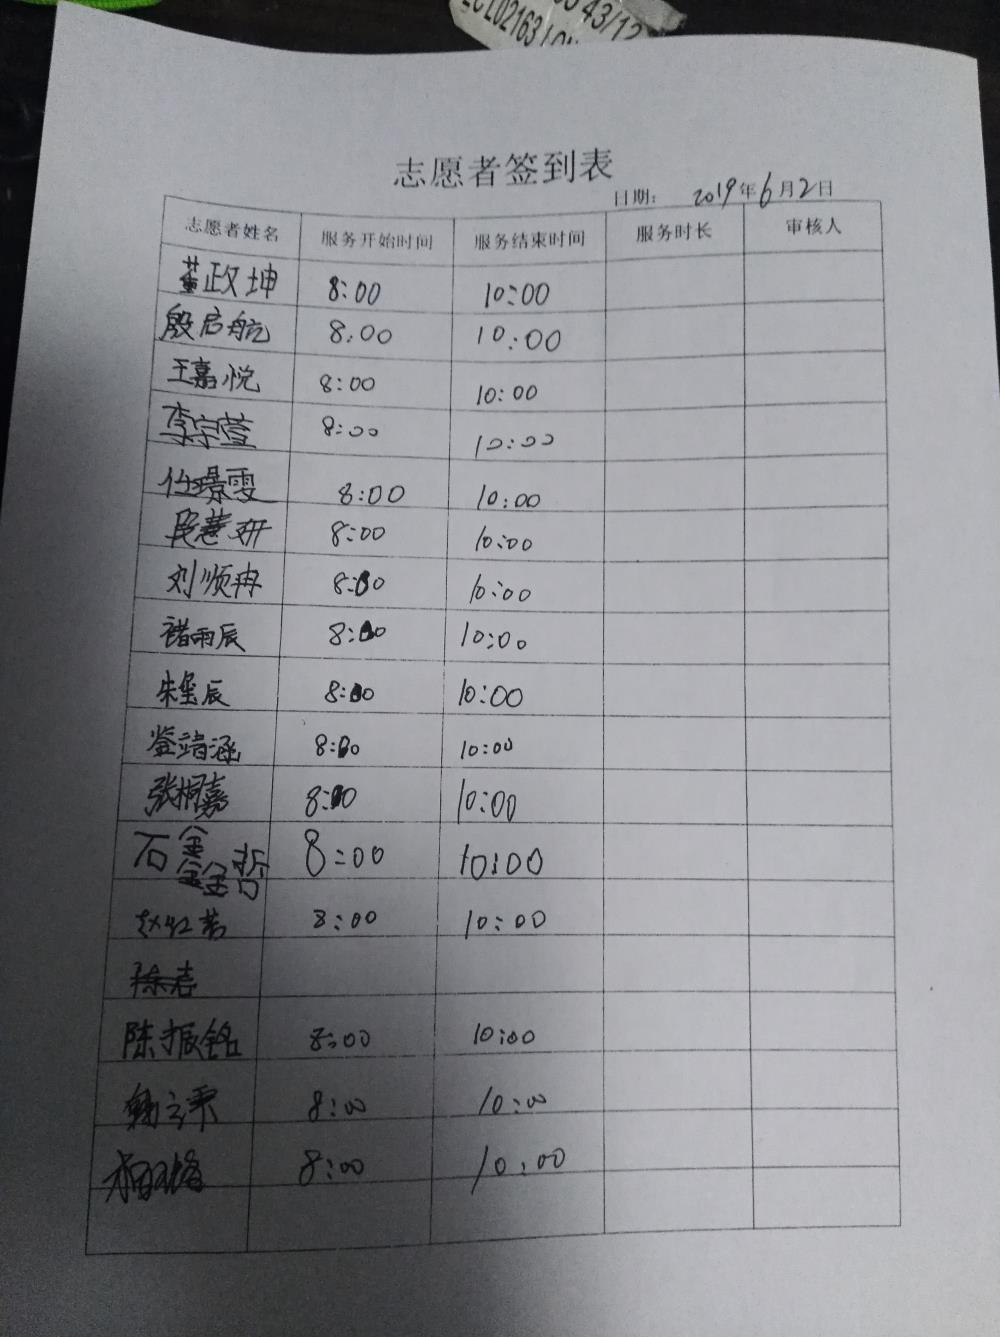 志愿者签到表
日期： 2019年6月2日
志愿者姓名 服务开始时间 服务结束时间 服务时长 审核人
董政坤 8:00 10:00
殷启航 8:00 10:00
王嘉悦 8:00 10:00
李宇萱 8:00 10:00
任璟雯 8:00 10:00
段慧妍 8:00 10:00
刘顺冉 8:00 10:00
褚雨辰 8:00 10:00
朱垡辰 8:00 10:00
靖涵 8:00 10:00
张桐嘉 8:00 10:00
石鑫哲 8:00 10:00
赵红 8:00 10:00
陈志
陈振铭 8:00 10:00
8:00 10:00
8:00 10:00